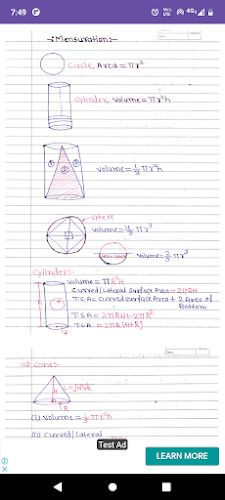 7:49
4G
-: Mensurations:-
Circle, Area = πr²
Cylinder, Volume = πr²h
① ② ③
Volume = 1/3 πr²h
Sphere
Volume = 4/3 πr³
Volume = 2/3 πr³
Cylinders:-
Volume = πR²H
Curved/Lateral Surface Area = 2πRH
T.S.A = Curved Surface Area + 2 Area of
Bottom
T.S.A = 2πRH + 2πR²
T.S.A = 2πR(H+R)
⇒ Cones:-
(i) Volume = 1/3 πr²h
(ii) Curved/Lateral
Test Ad
LEARN MORE